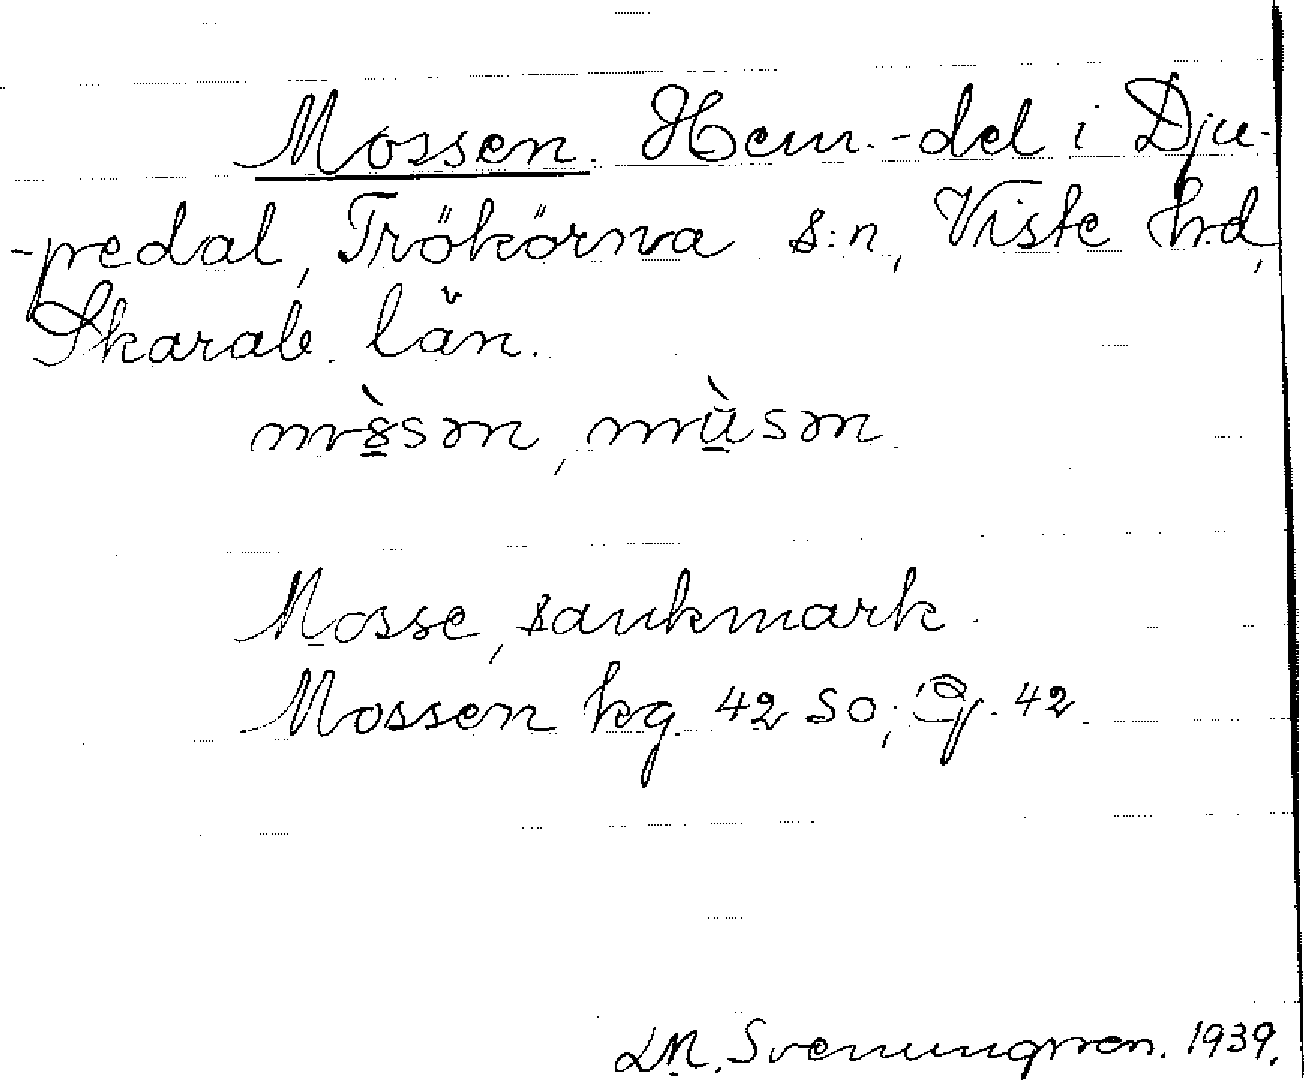 Mossen. Hem.-del i Dju-
-pedal, Trökörna s:n, Viste hd,
Skarab. län.
sən, mùsən.
Mosse, sankmark.
Mossen kg. 42 SO; G. 42.
Svenungsson. 1939.